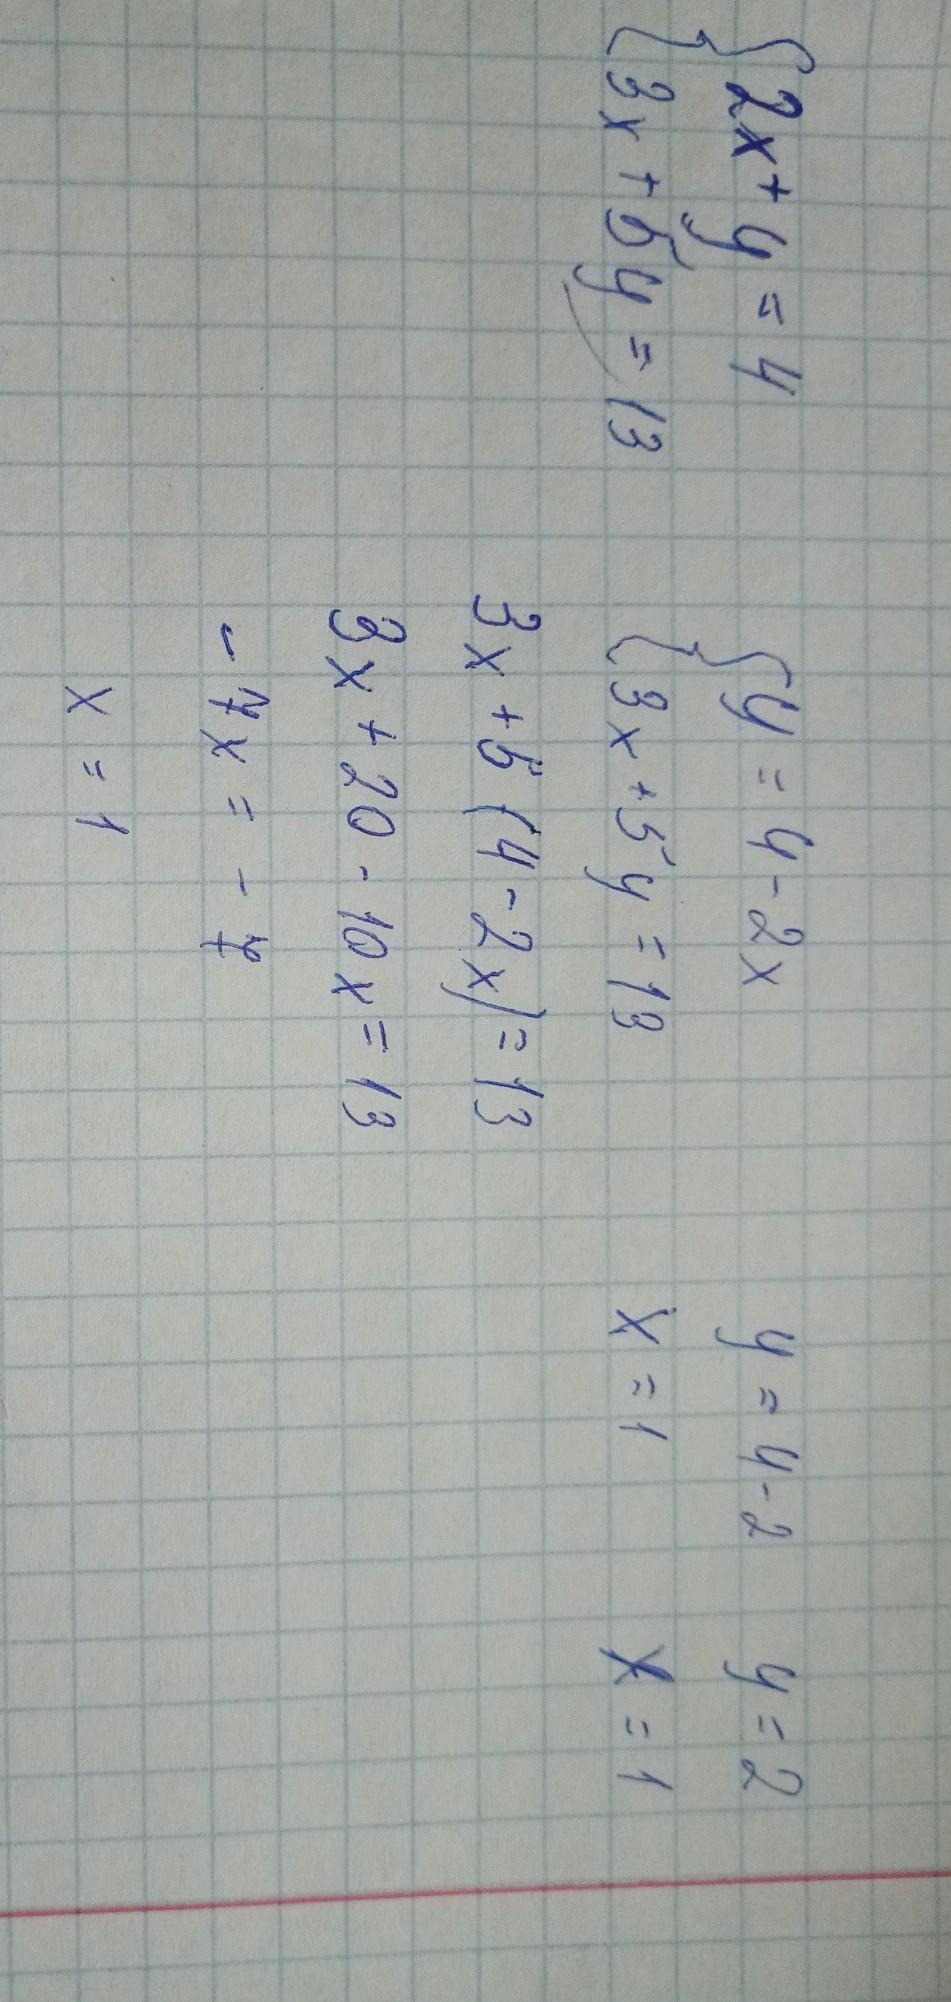 2x + y = 4
3x + 5y = 13
y = 4 - 2x
3x + 5y = 13
3x + 5 (4 - 2x) = 13
3x + 20 - 10x = 13
- 7x = - 7
x = 1
y = 4 - 2
x = 1
y = 2
x = 1